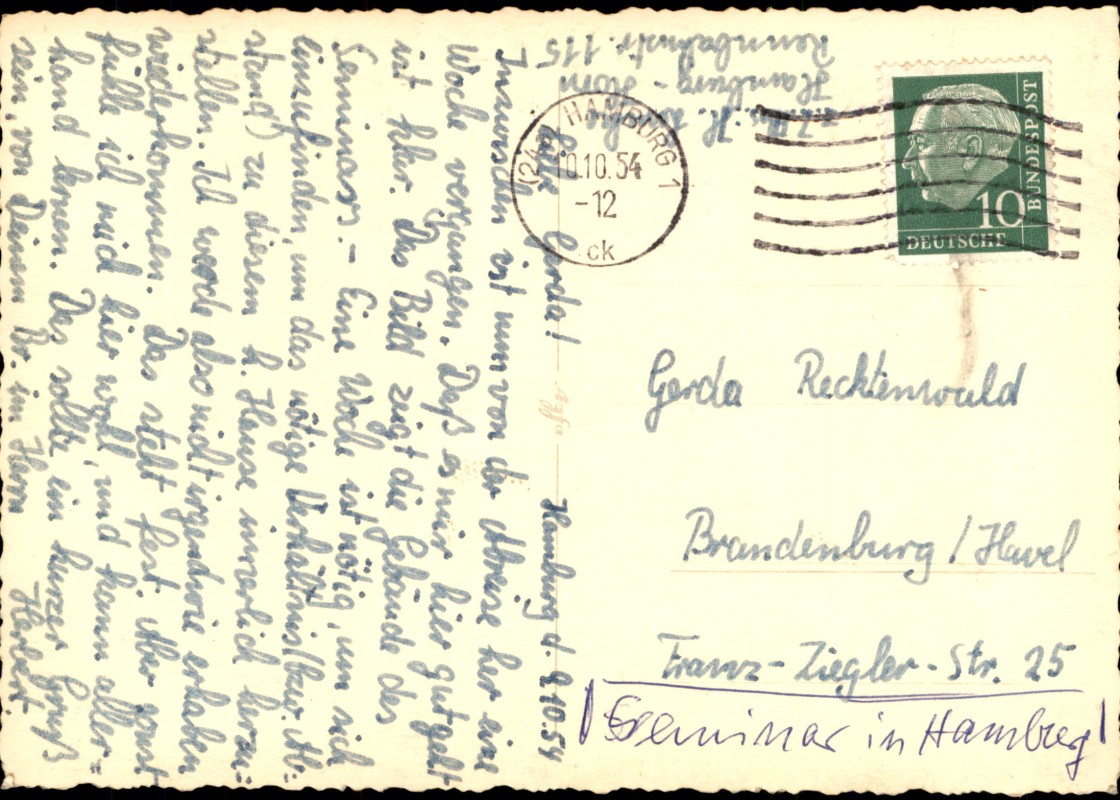 Hamburg d. 9.10.54
Liebe Gerda!
Inzwischen ist nun von der Abreise her eine
Woche vergangen. Daß es mir hier gut geht
ist klar. Das Bild zeigt die Gebäude des
Seminars. – Eine Woche ist nötig, um sich
einzufinden, um das nötige Verhältnis (bzw. Ab=
stand) zu diesem h. Hause innerlich herzu=
stellen. Ich werde also nicht irgendwie erhaben
wiederkommen. Das steht fest. Aber sonst
fühle ich mich hier wohl, und kann aller=
hand lernen. Das sollte ein kurzer Gruß
sein, von Deinem Br. im Herrn
Herbert
Hamburg - Horn
Rennbahnstr. 115
HAMBURG 1
10.10.54
-12
ck
DEUTSCHE
BUNDESPOST
10
Gerda Recktenwald
Brandenburg / Havel
Franz-Ziegler-Str. 25
Seminar in Hamburg